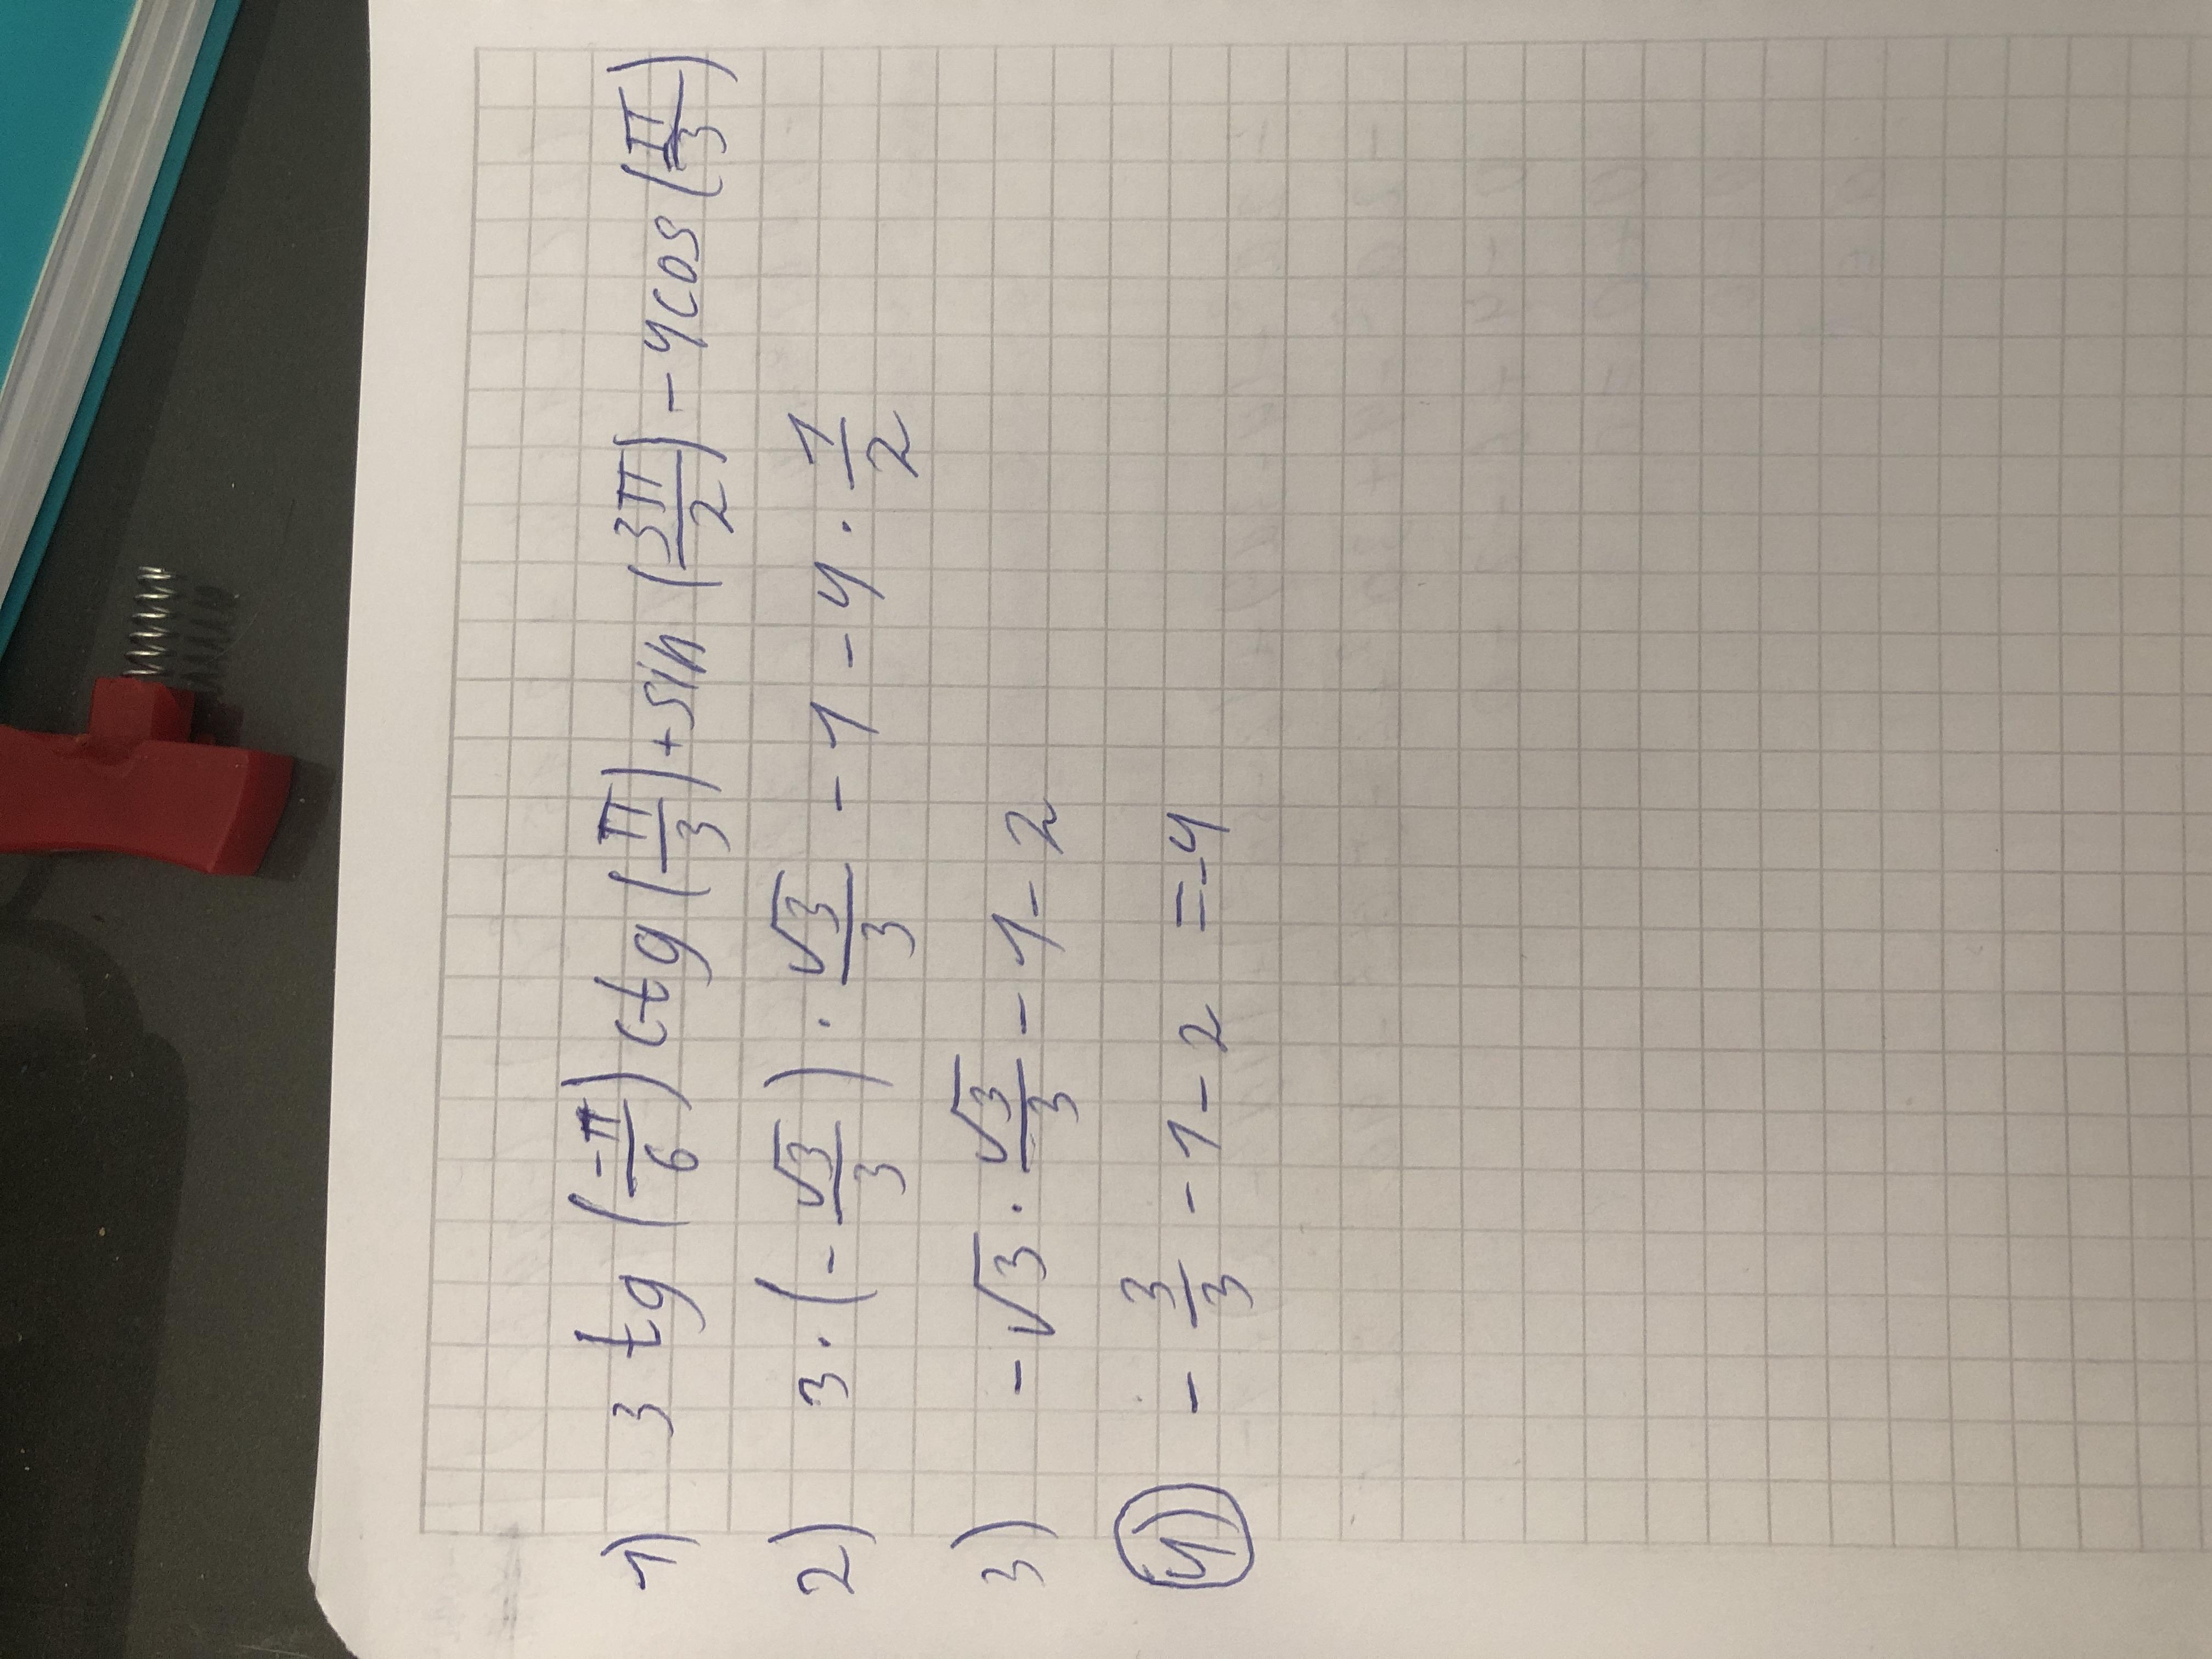 1) 3 tg (-π/6) ctg (π/3) + sin (3π/2) - 4cos (π/3)
2) 3 · (- √3/3) · √3/3 - 1 - 4 · 1/2
3) - √3 · √3/3 - 1 - 2
4) - 3/3 - 1 - 2 = -4